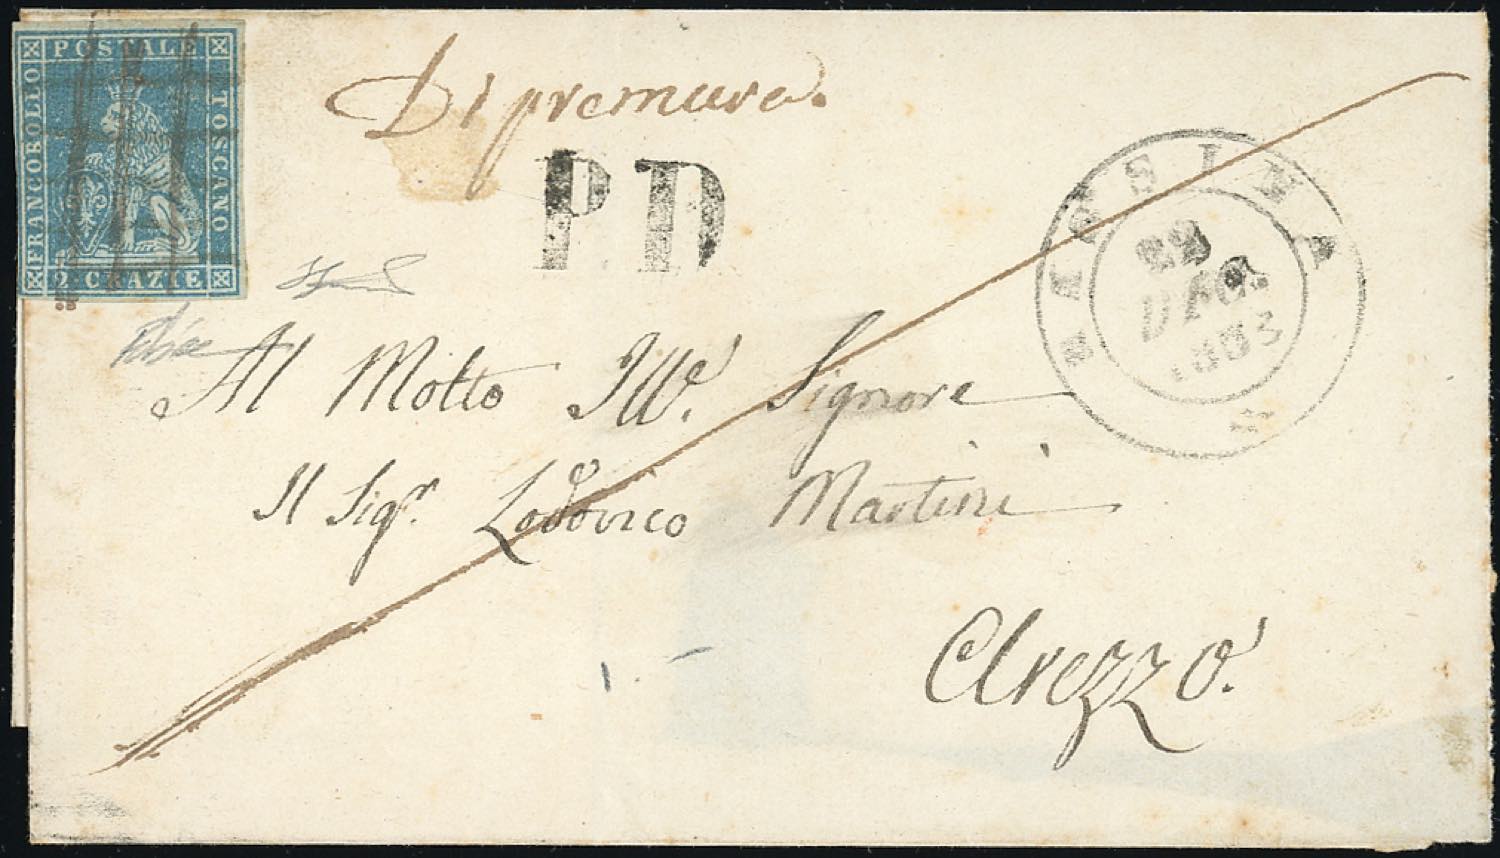 FRANCOBOLLO POSTALE TOSCANO
2 CRAZIE
Di premura.
P.D
RASSINA
22
DEC.
1853
Al Molto Ill.e Signore
Il Sigr. Lodovico Martini
Arezzo.